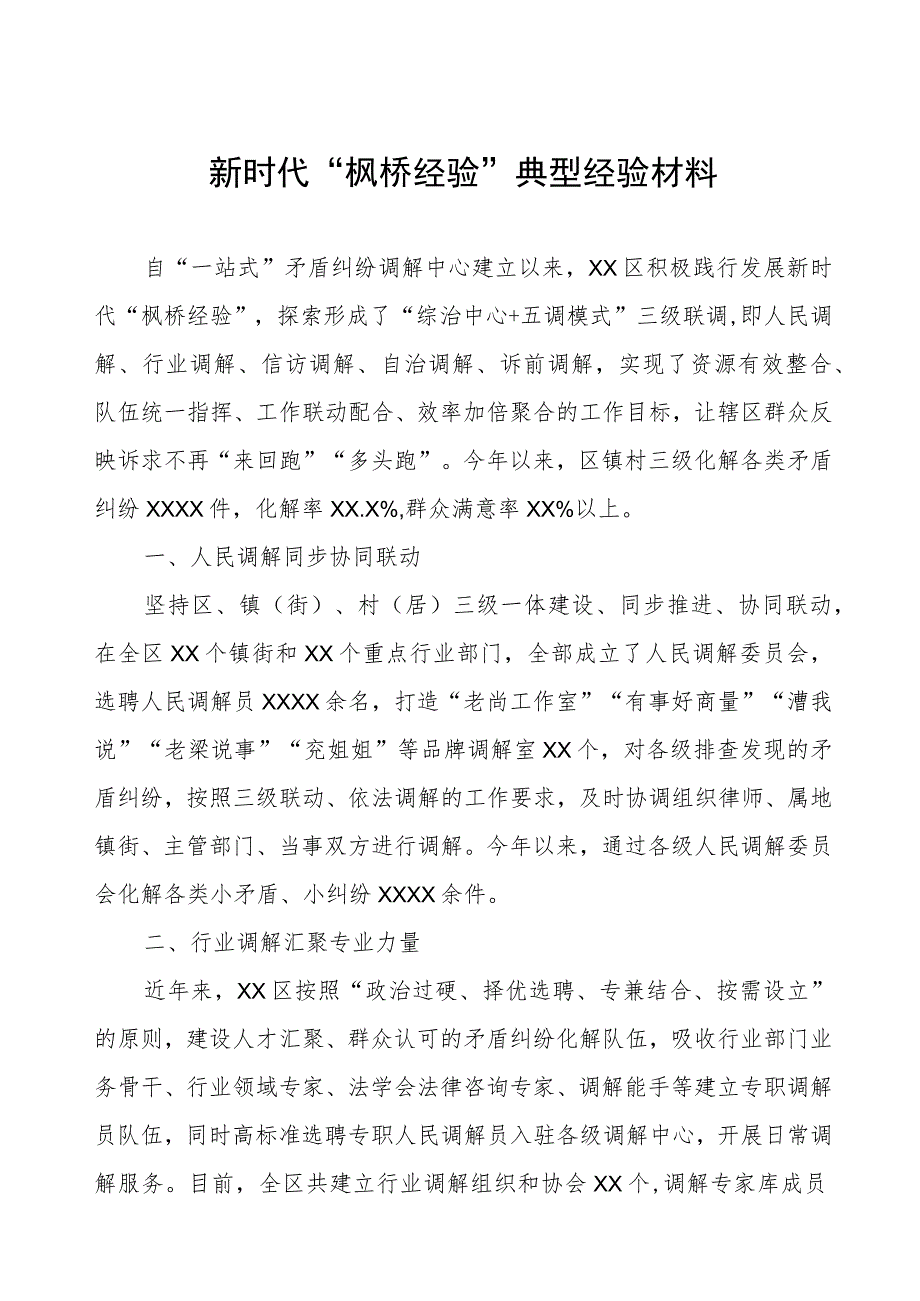 新时代“枫桥经验”典型经验材料
自“一站式”矛盾纠纷调解中心建立以来，XX区积极践行发展新时
代“枫桥经验”，探索形成了“综治中心+五调模式”三级联调,即人民调
解、行业调解、信访调解、自治调解、诉前调解，实现了资源有效整合、
队伍统一指挥、工作联动配合、效率加倍聚合的工作目标，让辖区群众反
映诉求不再“来回跑”“多头跑”。今年以来，区镇村三级化解各类矛盾
纠纷XXXX件，化解率XX.X%,群众满意率XX%以上。
一、人民调解同步协同联动
坚持区、镇（街）、村（居）三级一体建设、同步推进、协同联动，
在全区XX个镇街和XX个重点行业部门，全部成立了人民调解委员会，
选聘人民调解员XXXX余名，打造“老尚工作室”“有事好商量”“漕我
说”“老梁说事”“兖姐姐”等品牌调解室XX个，对各级排查发现的矛
盾纠纷，按照三级联动、依法调解的工作要求，及时协调组织律师、属地
镇街、主管部门、当事双方进行调解。今年以来，通过各级人民调解委员
会化解各类小矛盾、小纠纷XXXX余件。
二、行业调解汇聚专业力量
近年来，XX区按照“政治过硬、择优选聘、专兼结合、按需设立”
的原则，建设人才汇聚、群众认可的矛盾纠纷化解队伍，吸收行业部门业
务骨干、行业领域专家、法学会法律咨询专家、调解能手等建立专职调解
员队伍，同时高标准选聘专职人民调解员入驻各级调解中心，开展日常调
解服务。目前，全区共建立行业调解组织和协会XX个,调解专家库成员